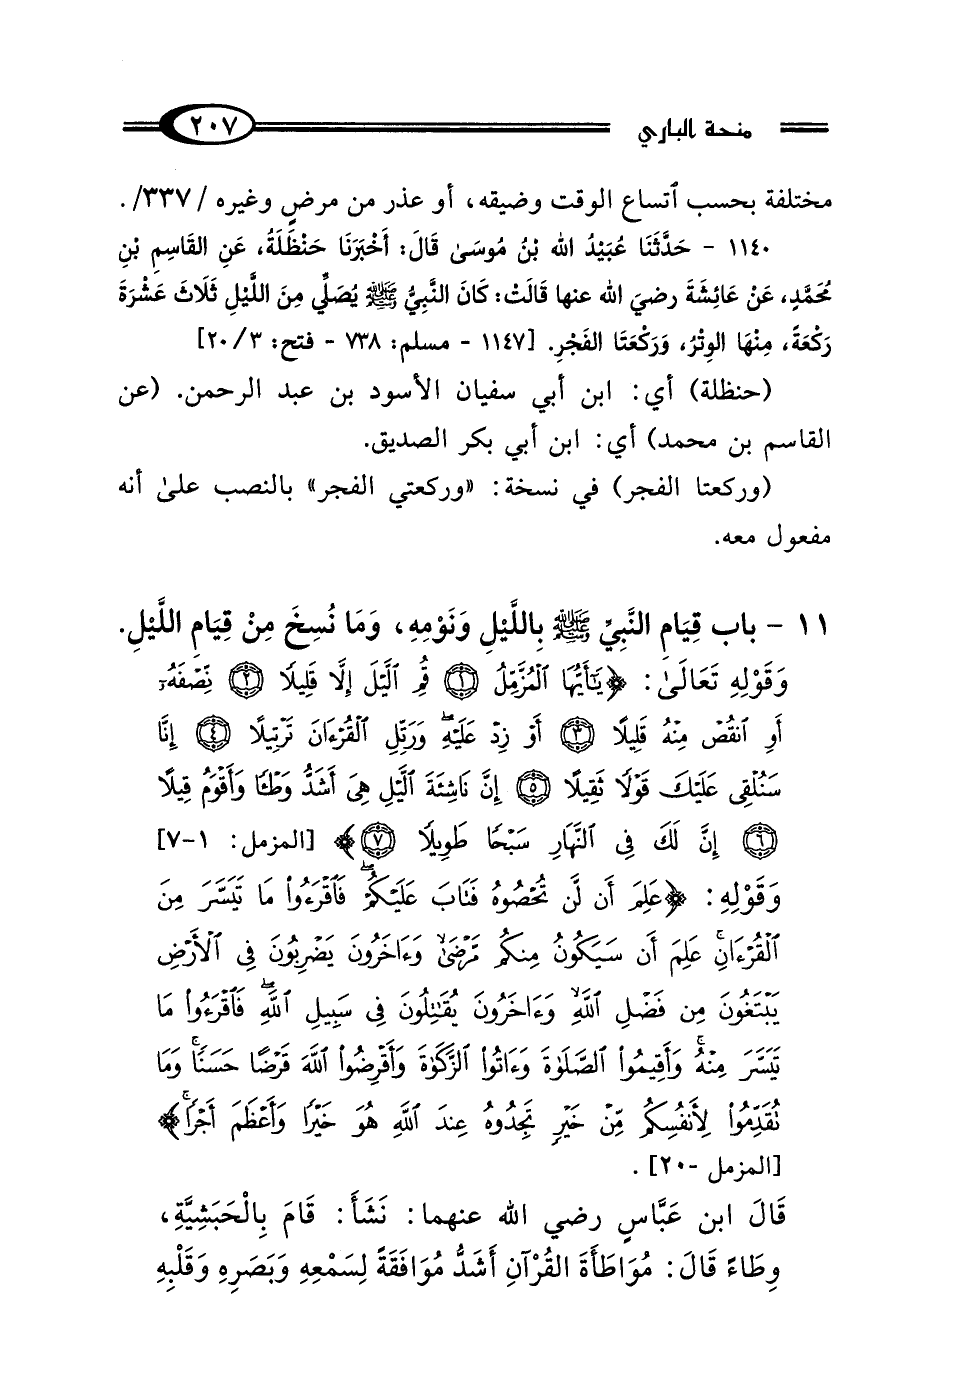 منحة الباري ٢٠٧
مختلفة بحسب ٱتساع الوقت وضيقه، أو عذر من مرض وغيره /٣٣٧/.
١١٤٠ - حَدَّثَنَا عُبَيْدُ الله بْنُ مُوسَىٰ قَالَ: أَخْبَرَنَا حَنْظَلَةُ، عَنِ القَاسِمِ بْنِ
مُحَمَّدٍ، عَنْ عَائِشَةَ رضيَ الله عنها قَالَتْ: كَانَ النَّبِيُّ ﷺ يُصَلِّي مِنَ اللَّيْلِ ثَلَاثَ عَشْرَةَ
رَكْعَةً، مِنْهَا الوِتْرُ، وَرَكْعَتَا الفَجْرِ. [١١٤٧ - مسلم: ٧٣٨ - فتح: ٢٠/٣]
(حنظلة) أي: ابن أبي سفيان الأسود بن عبد الرحمن. (عن
القاسم بن محمد) أي: ابن أبي بكر الصديق.
(وركعتا الفجر) في نسخة: «وركعتي الفجر» بالنصب علىٰ أنه
مفعول معه.
١١ - باب قِيَامِ النَّبِيِّ ﷺ بِاللَّيْلِ وَنَوْمِهِ، وَمَا نُسِخَ مِنْ قِيَامِ اللَّيْلِ.
وَقَوْلِهِ تَعَالَىٰ: ﴿يَٰٓأَيُّهَا ٱلْمُزَّمِّلُ ١ قُمِ ٱلَّيْلَ إِلَّا قَلِيلًا ٢ نِّصْفَهُۥٓ
أَوِ ٱنقُصْ مِنْهُ قَلِيلًا ٣ أَوْ زِدْ عَلَيْهِ ۖ وَرَتِّلِ ٱلْقُرْءَانَ تَرْتِيلًا ٤ إِنَّا
سَنُلْقِى عَلَيْكَ قَوْلًا ثَقِيلًا ٥ إِنَّ نَاشِئَةَ ٱلَّيْلِ هِىَ أَشَدُّ وَطْـًٔا وَأَقْوَمُ قِيلًا
٦ إِنَّ لَكَ فِى ٱلنَّهَارِ سَبْحًا طَوِيلًا ٧﴾ [المزمل: ١-٧]
وَقَوْلِهِ: ﴿عَلِمَ أَن لَّن تُحْصُوهُ فَتَابَ عَلَيْكُمْ ۖ فَٱقْرَءُوا۟ مَا تَيَسَّرَ مِنَ
ٱلْقُرْءَانِ ۚ عَلِمَ أَن سَيَكُونُ مِنكُم مَّرْضَىٰ ۙ وَءَاخَرُونَ يَضْرِبُونَ فِى ٱلْأَرْضِ
يَبْتَغُونَ مِن فَضْلِ ٱللَّهِ ۙ وَءَاخَرُونَ يُقَٰتِلُونَ فِى سَبِيلِ ٱللَّهِ ۖ فَٱقْرَءُوا۟ مَا
تَيَسَّرَ مِنْهُ ۚ وَأَقِيمُوا۟ ٱلصَّلَوٰةَ وَءَاتُوا۟ ٱلزَّكَوٰةَ وَأَقْرِضُوا۟ ٱللَّهَ قَرْضًا حَسَنًا ۚ وَمَا
تُقَدِّمُوا۟ لِأَنفُسِكُم مِّنْ خَيْرٍ تَجِدُوهُ عِندَ ٱللَّهِ هُوَ خَيْرًا وَأَعْظَمَ أَجْرًا ۚ﴾
[المزمل -٢٠].
قَالَ ابن عَبَّاسٍ رضي الله عنهما: نَشَأَ: قَامَ بِالْحَبَشِيَّةِ،
وِطَاءً قَالَ: مُوَاطَأَةَ القُرْآنِ أَشَدُّ مُوَافَقَةً لِسَمْعِهِ وَبَصَرِهِ وَقَلْبِهِ